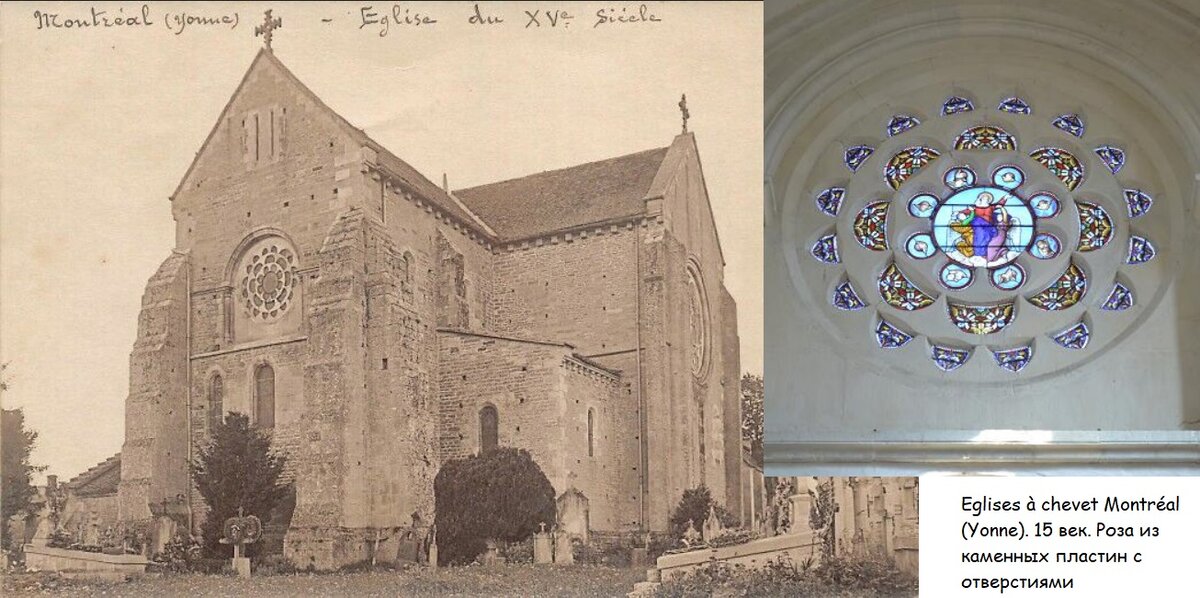 Montréal (Yonne) - Eglise du XVe Siécle
Eglises à chevet Montréal
(Yonne). 15 век. Роза из
каменных пластин с
отверстиями